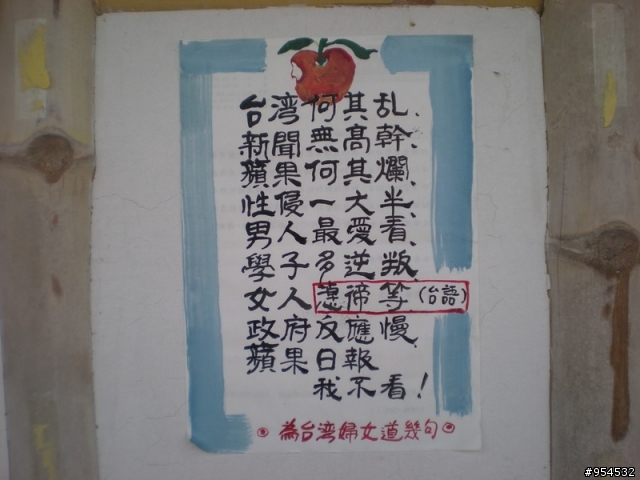 台湾何其乱、
新聞無高幹、
蘋果何其爛、
性侵一大半、
男人最愛看、
學子多逆叛、
女人等(台語)
政府反應慢、
蘋果日報
我不看！
為台湾婦女道幾句
#954532